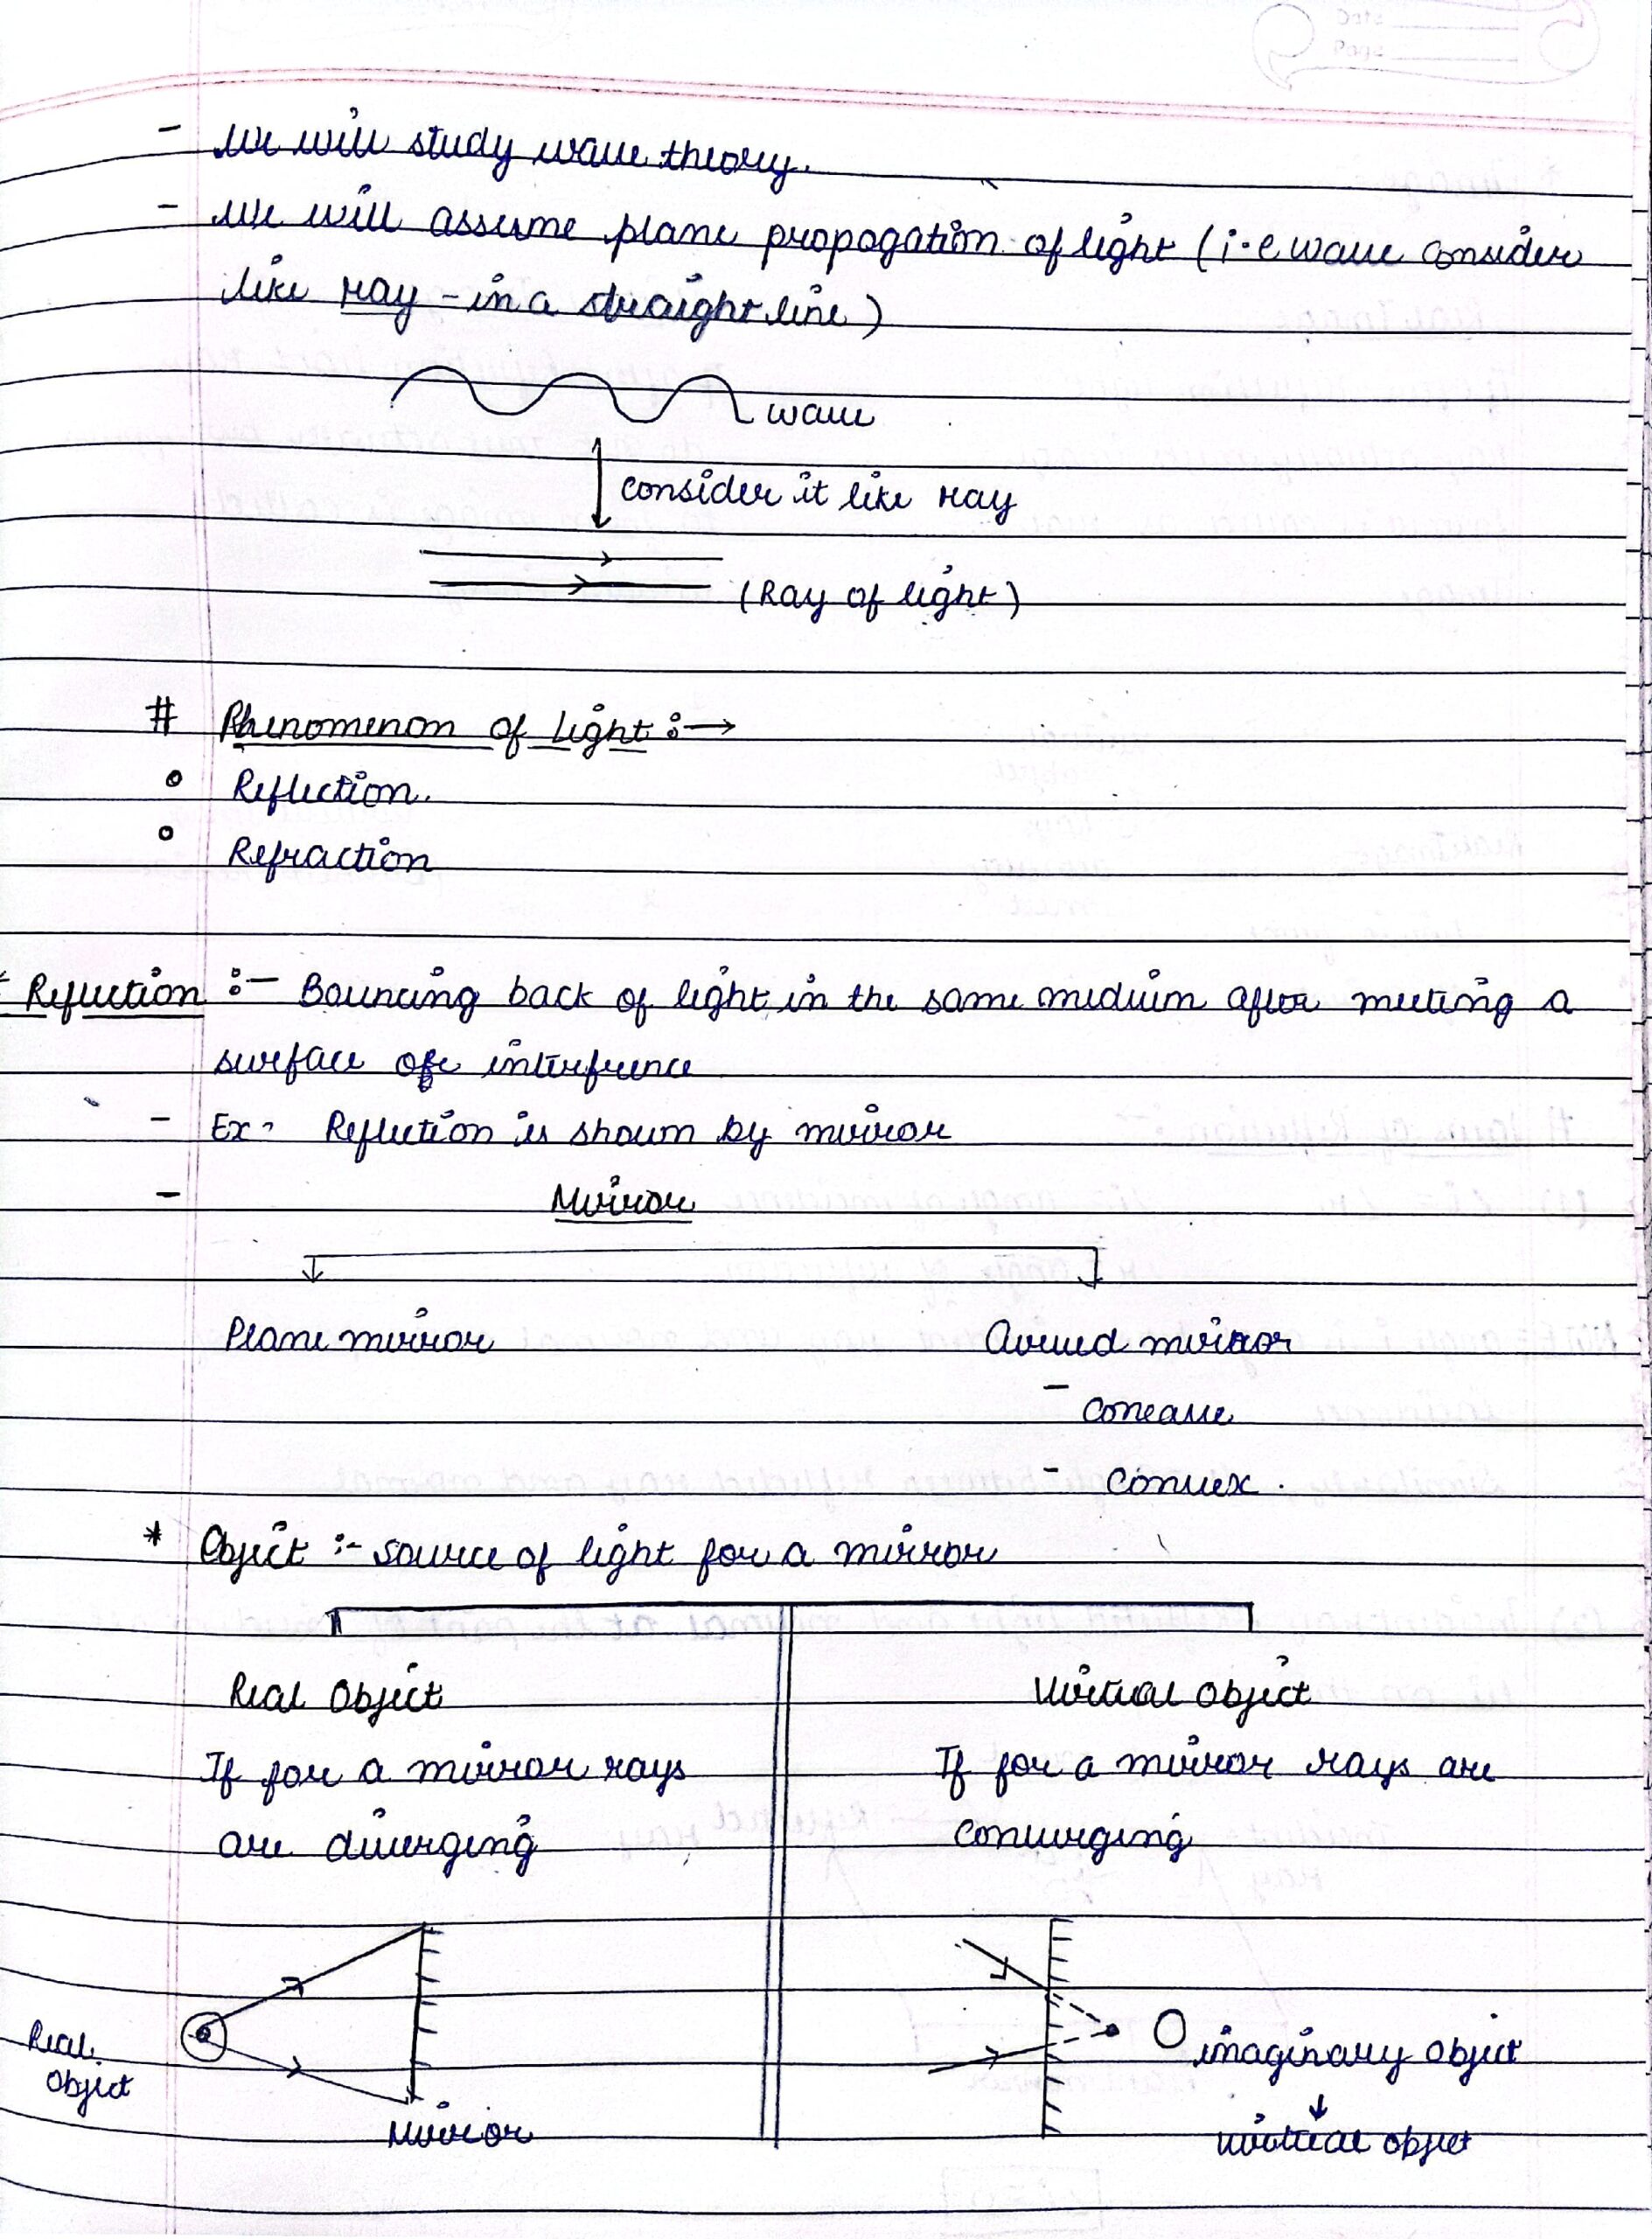 Date
Page
- we will study wave theory.
- we will assume plane propogation of light (i.e wave consider
like Ray - in a straight line)
wave
consider it like Ray
(Ray of light)
# Phenomenon of Light :→
° Reflection.
° Refraction
* Reflection :- Bouncing back of light in the same medium after meeting a
surface of interference
- Ex- Reflection is shown by mirror
- Mirror
Plane mirror Curved mirror
- Concave
- Convex .
* Object :- source of light for a mirror
Real Object Virtual object
If for a mirror rays If for a mirror rays are
are diverging converging
Real Object
Mirror
O imaginary object
↓
virtual object